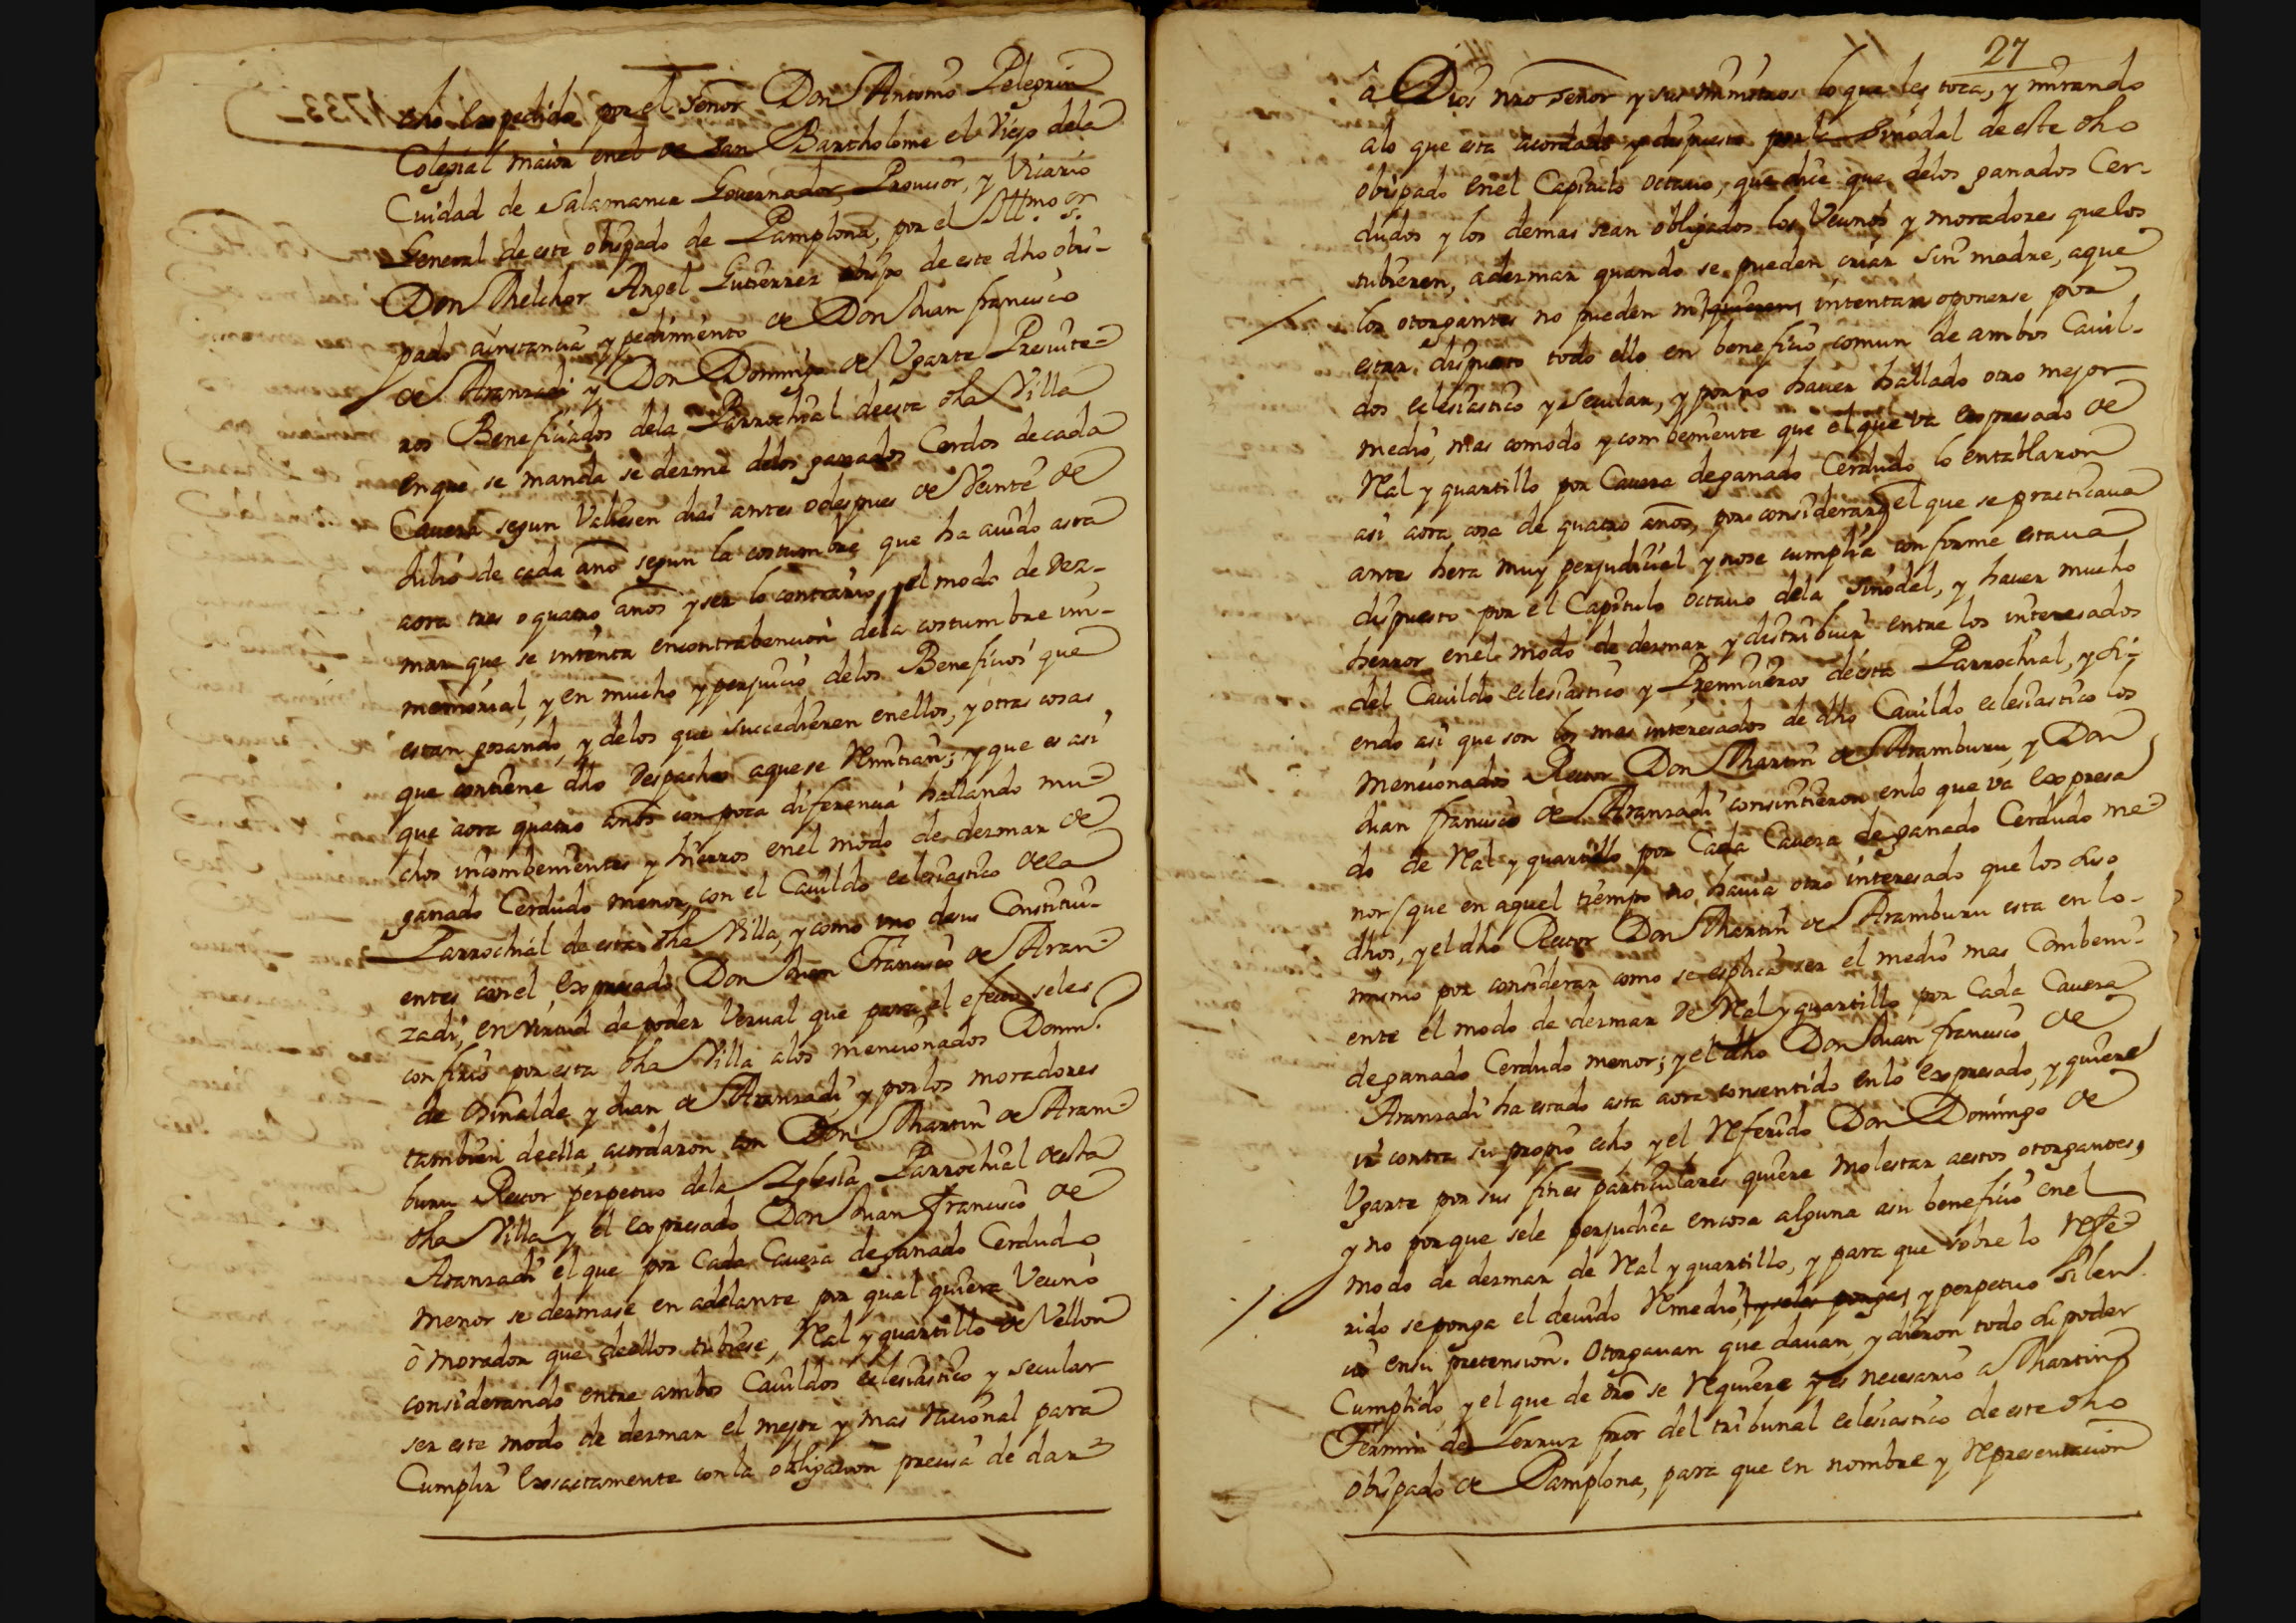 cho Expedido por el Señor Don Antonio Pelegrin
Colegial maior enel de San Bartholome el Viejo dela
Cuidad de Salamanca Governador, Provisor, y Vicario
General de este obispado de Pamplona, por el Illmo Sr.
Don Melchor Angel Gutierrez obispo de este dho obis-
pado ainstancia y pedimento de Don Juan francisco
de Aranzadi y Don Domingo de Ugarte Presvite-
ros Beneficiados dela Parrochial deesta dha Villa
enque se manda se dezme delos ganados Cerdos decada
Caveza segun Valiesen dias antes odespues de Veinte de
Julio de cada año segun la costumbre que ha avido asta
aora tres o quatro años y ser lo contrario, y el modo de dez-
mar que se intenta encontrabencion dela costumbre im-
memorial, y en mucho perjuicio delos Beneficios que
estan gozando, y delos que succedieren enellos, y otras cosas
que contiene dho despacho aquese Remitian; y que es asi
que aora quatro años con poca diferencia hallando mu-
chos incombenientes y hierros enel modo de dezmar de
ganado Cerdudo menor, con el Cavildo eclesiastico dela
Parrochial de esta dha Villa, y como uno desus Constitui-
entes con el Expresado Don Juan Francisco de Aran-
zadi, en virtud de poder Verval que para el efecto seles
confirio por esta dha Villa alos mencionados Domin.º
de Osinalde y Juan de Aranzadi y por los moradores
tambien deella acordaron con Don Martin de Aram-
buru Rector perpetuo dela Iglesia Parrochial deesta
dha Villa y el Expresado Don Juan francisco de
Aranzadi el que por Cada Caveza deganado Cerdudo
menor se dezmase en adelante por qual quiera Vecino
ò morador que deellos tubiese, Real y quartillo de Vellon
considerando entre ambos Cavildos eclesiastico y secular
ser este modo de dezmar el mejor y mas racional para
Cumplir Exsactamente con la obligacion precisa de dar
27
a Dios nro señor y sus ministros lo que les toca, y mirando
alo que esta acordado y dispuesto por la Sinodal de este dho
obispado enel Capitulo octavo, que dice que delos ganados Cer-
dudos y los demas sean obligados los Vecinos y moradores que los
tubieren, adezmar quando se pueden criar sin madre, aque
los otorgantes no pueden ni quieren intentar oponerse por
estar dispuesto todo ello en beneficio comun de ambos Cavil-
dos eclesiastico y Secular, y por no haver hallado otro mejor
medio, mas comodo y combeniente que el que va Expresado de
Real y quartillo por Caveza deganado Cerdudo lo entablaron
asi aora cosa de quatro años, por considerar el que se practicava
antes hera muy perjudicial y nose cumplia conforme estava
dispuesto por el Capitulo octavo dela Sinodal, y haver mucho
herror enel modo de dezmar y distribuir entre los interesados
del Cavildo eclesiastico y Premicieros deesta Parrochial, y si-
endo asi que son los mas interesados de dho Cavildo eclesiastico los
mencionados Rector Don Martin de Aramburu, y Don
Juan francisco de Aranzadi consintieron enlo que va Expresa
do de Real y quartillo por Cada Caveza deganado Cerdudo me-
nor (que en aquel tiempo no havia otro interesado que los dos
dhos, y el dho Rector Don Martin de Aramburu esta en lo
mismo por considerar como se esplica ser el medio mas Combeni-
ente el modo de dezmar de Real y quartillo por Cada Caveza
deganado Cerdudo menor; y el dho Don Juan francisco de
Aranzadi ha estado asta aora consentido enlo Expresado, y quiere
ir contra su propio echo y el Referido Don Domingo de
Ugarte por sus fines particulares quiere molestar aestos otorgantes,
y no porque sele perjudica encosa alguna asu beneficio enel
modo de dezmar de Real y quartillo, y para que sobre lo Refe-
rido seponga el devido Remedio, y seles ponga, y perpetuo silen
cio ensu pretension. Otorgavan que davan, y dieron todo su poder
Cumplido y el que de dro se Requiere y es necesario a Martin
Fermin de Lerruz pror del tribunal eclesiastico de este dho
obispado de Pamplona, para que en nombre y Representacion